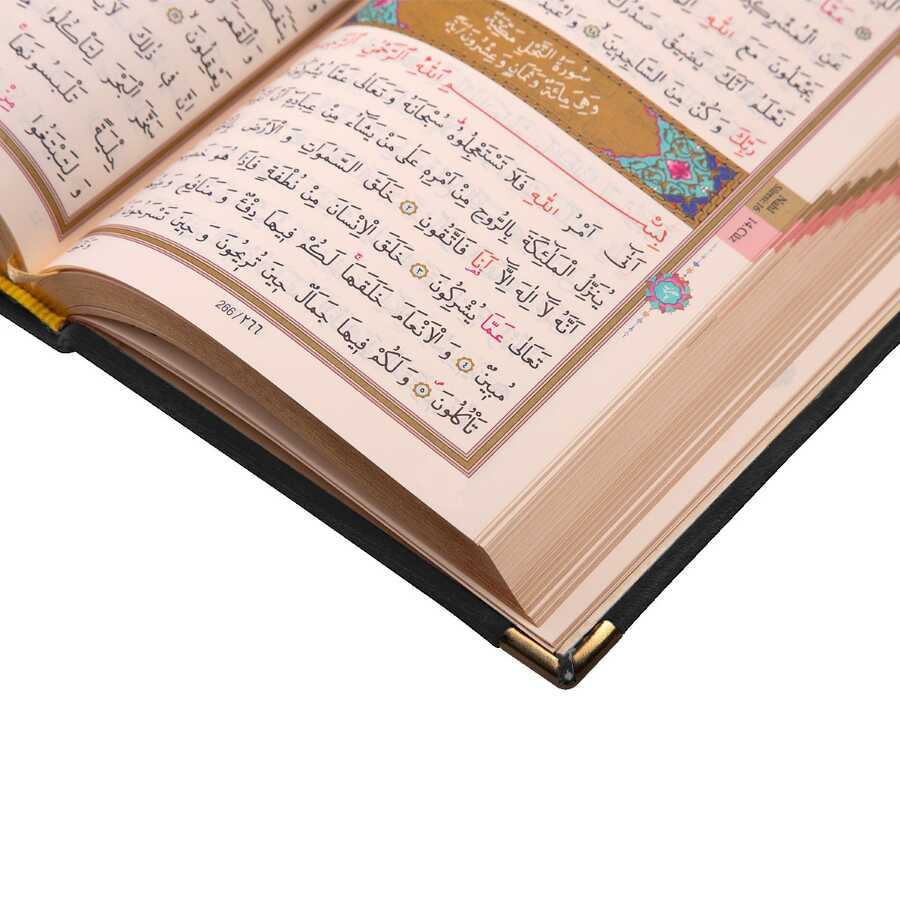 عَنِ الْمُشْرِكِينَ
يَجْعَلُونَ مَعَ اللّٰهِ
نَعْلَمُ اَنَّكَ يَضِيقُ صَدْرُكَ
رَبِّكَ وَ كُنْ مِنَ السَّاجِدِينَ ٩٨ وَاعْبُدْ
سُورَةُ النَّحْلِ مَكِّيَّةٌ
وَهِيَ مِائَةٌ وَثَمَانٍ وَعِشْرُونَ اٰيَةً
بِسْمِ اللّٰهِ الرَّحْمٰنِ الرَّحِيمِ
اَتٰٓى اَمْرُ اللّٰهِ فَلَا تَسْتَعْجِلُوهُ سُبْحَانَهُ وَ تَعَالٰى عَمَّا يُشْرِكُونَ
يُنَزِّلُ الْمَلٰٓئِكَةَ بِالرُّوحِ مِنْ اَمْرِهِ عَلٰى مَنْ يَشَٓاءُ مِنْ عِبَادِهِ
اَنَّهُ لَٓا اِلٰهَ اِلَّٓا اَنَا۬ فَاتَّقُونِ ٢ خَلَقَ السَّمٰوَاتِ وَ الْاَرْضَ
تَعَالٰى عَمَّا يُشْرِكُونَ ٣ خَلَقَ الْاِنْسَانَ مِنْ نُطْفَةٍ فَاِذَا هُوَ خَصِيمٌ
مُبِينٌ ٤ وَ الْاَنْعَامَ خَلَقَهَا لَكُمْ فِيهَا دِفْءٌ وَ مَنَافِعُ وَ مِنْهَا
تَأْكُلُونَ ٥ وَ لَكُمْ فِيهَا جَمَالٌ حِينَ تُرِيحُونَ وَ حِينَ تَسْرَحُونَ
266 / ٢٦٦
Nahl
Sûresi:16
14 Cüz
يَعْقِلُونَ
فِى ذٰلِكَ
الْبَحْرَ لِتَأْكُلُوا
تَلْبَسُونَهَا
وَ لِتَبْتَغُوا